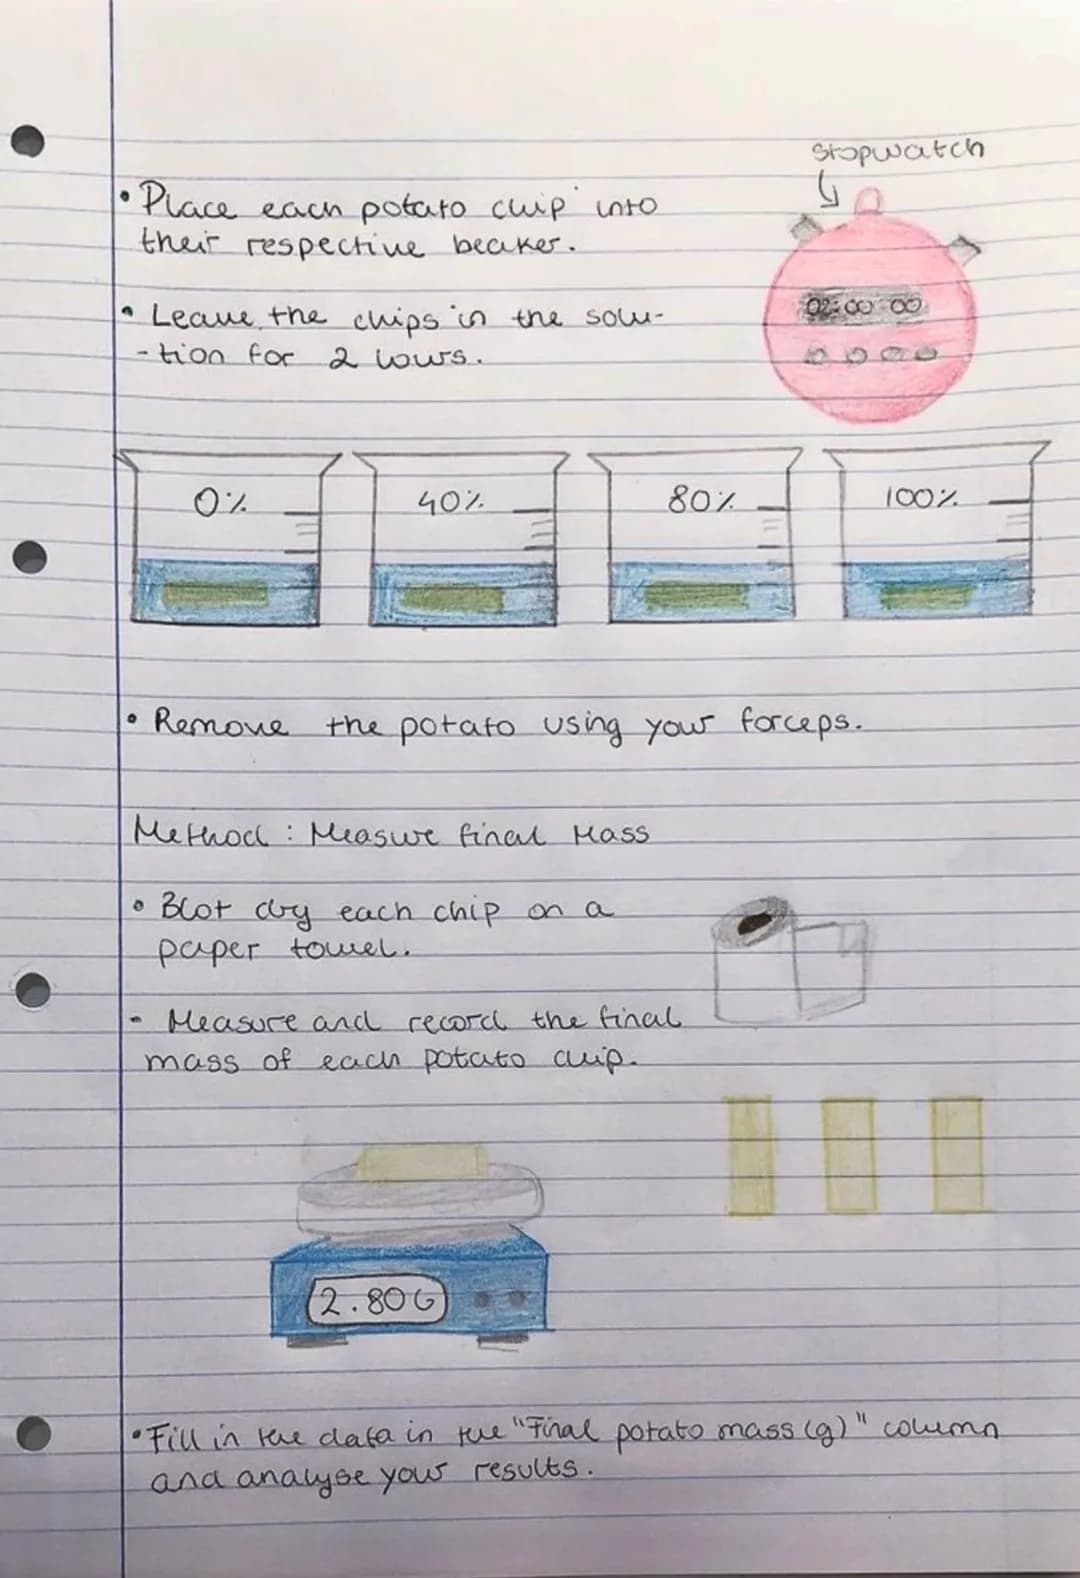 stopwatch
• Place each potato chip into
their respective beaker.
02:00 00
• Leave the chips in the solu-
-tion for 2 hours.
0% 40% 80% 100%
• Remove the potato using your forceps.
Method : Measure final Mass
• Blot dry each chip on a
paper towel.
- Measure and record the final
mass of each potato chip.
2.80G
• Fill in the data in the "Final potato mass (g)" column
and analyse your results.